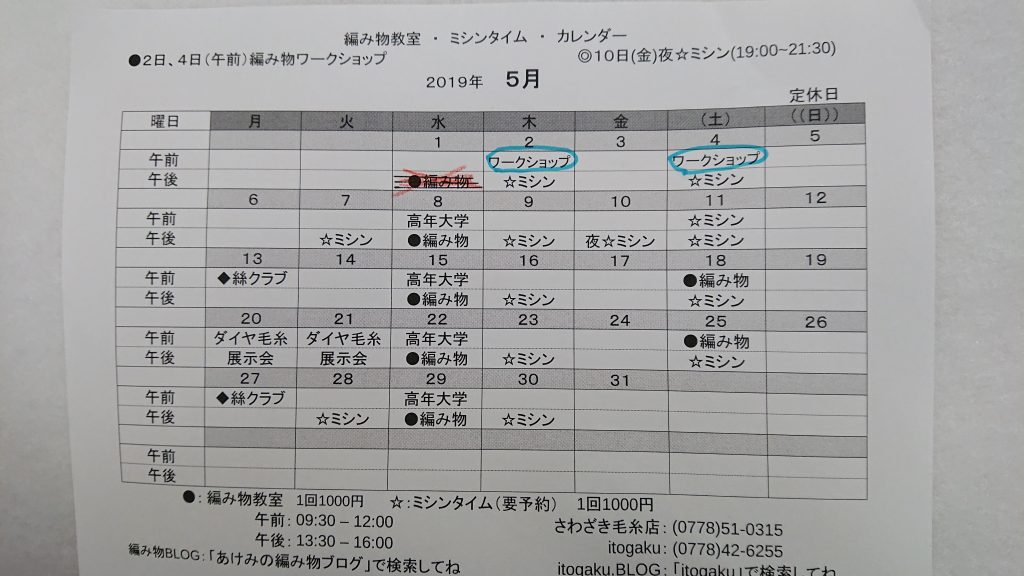 編み物教室 ・ ミシンタイム ・ カレンダー
●2日、4日(午前)編み物ワークショップ ◎10日(金)夜☆ミシン(19:00~21:30)
2019年 5月
定休日
曜日 月 火 水 木 金 (土) ((日))
1 2 3 4 5
午前 ワークショップ ワークショップ
午後 ●編み物 ☆ミシン ☆ミシン
6 7 8 9 10 11 12
午前 高年大学 ☆ミシン
午後 ☆ミシン ●編み物 ☆ミシン 夜☆ミシン ☆ミシン
13 14 15 16 17 18 19
午前 ◆絲クラブ 高年大学 ●編み物
午後 ●編み物 ☆ミシン ☆ミシン
20 21 22 23 24 25 26
午前 ダイヤ毛糸 ダイヤ毛糸 高年大学 ●編み物
午後 展示会 展示会 ●編み物 ☆ミシン ☆ミシン
27 28 29 30 31
午前 ◆絲クラブ 高年大学
午後 ☆ミシン ●編み物 ☆ミシン
午前
午後
●:編み物教室 1回1000円 ☆:ミシンタイム(要予約) 1回1000円
午前:09:30 – 12:00 さわざき毛糸店:(0778)51-0315
午後:13:30 – 16:00 itogaku:(0778)42-6255
編み物BLOG:「あけみの編み物ブログ」で検索してね itogaku.BLOG:「itogaku」で検索してね